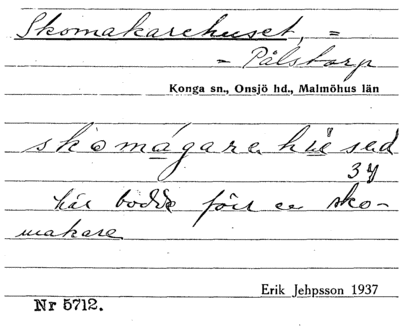 Skomakarehuset, =
= Pålstorp
Konga sn., Onsjö hd., Malmöhus län
skomágare hùsed
34
här bodde förr en sko-
makare
Erik Jehpsson 1937
Nr 5712.